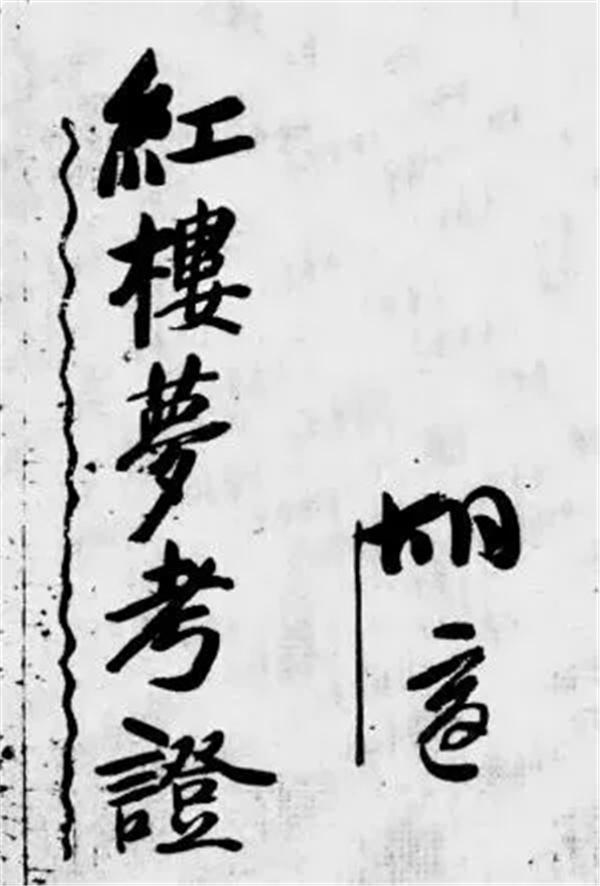 胡適
紅樓夢考證